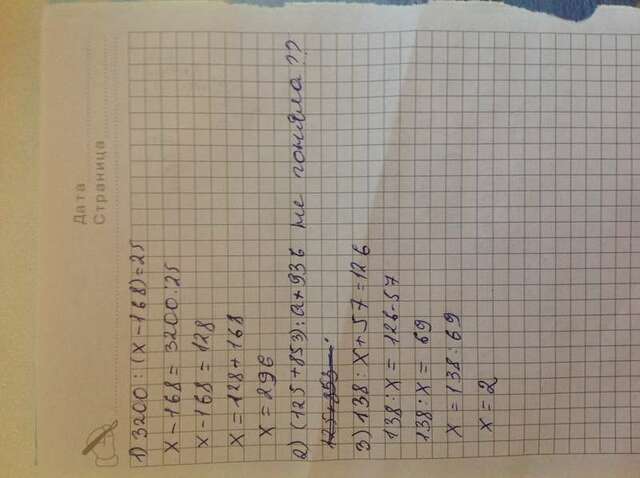 Дата
Страница
1) 3200 : (х - 168) = 25
х - 168 = 3200 : 25
х - 168 = 128
х = 128 + 168
х = 296
2) (125 + 853) : а + 936 не поняла ??
125 + 853
3) 138 : х + 57 = 126
138 : х = 126 - 57
138 : х = 69
х = 138 : 69
х = 2